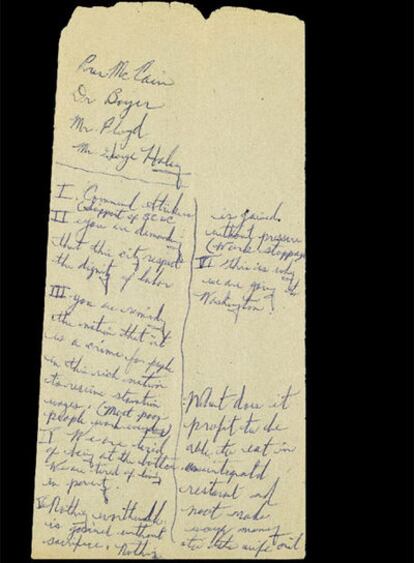 Rev McCain
Dr Boyer
Mr. Ployd
Mr George Haley
I. Commend strikers
(Support of SCLC
II you are demanding
that this city respect
the dignity of labor
III you are reminding
the nation that it
is a crime for people
in this rich nation
to receive starvation
wages. (Most poor
people work
IV We are tired
of being at the bottom
We are tired of living
in poverty.
V Nothing worthwhile
is gained without
sacrifice. Nothing
is gained
without pressure
(Work stoppage
VI This is why
we are going to
Washington.
What does it
profit to be
able to eat in
integrated
restorant and
not make
enough money
to take wife out